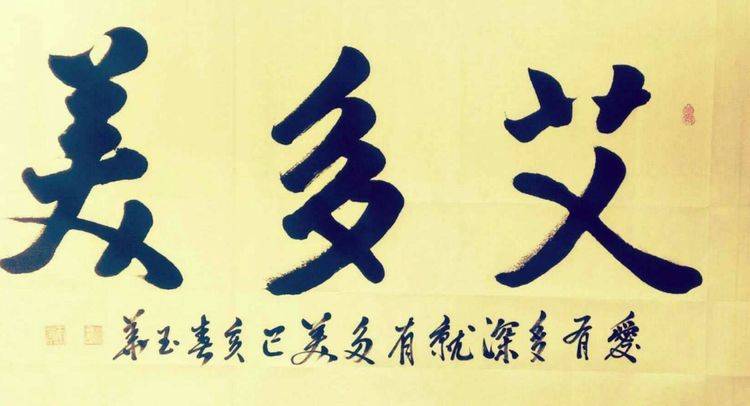 艾多美
愛有多深就有多美己亥春玉華